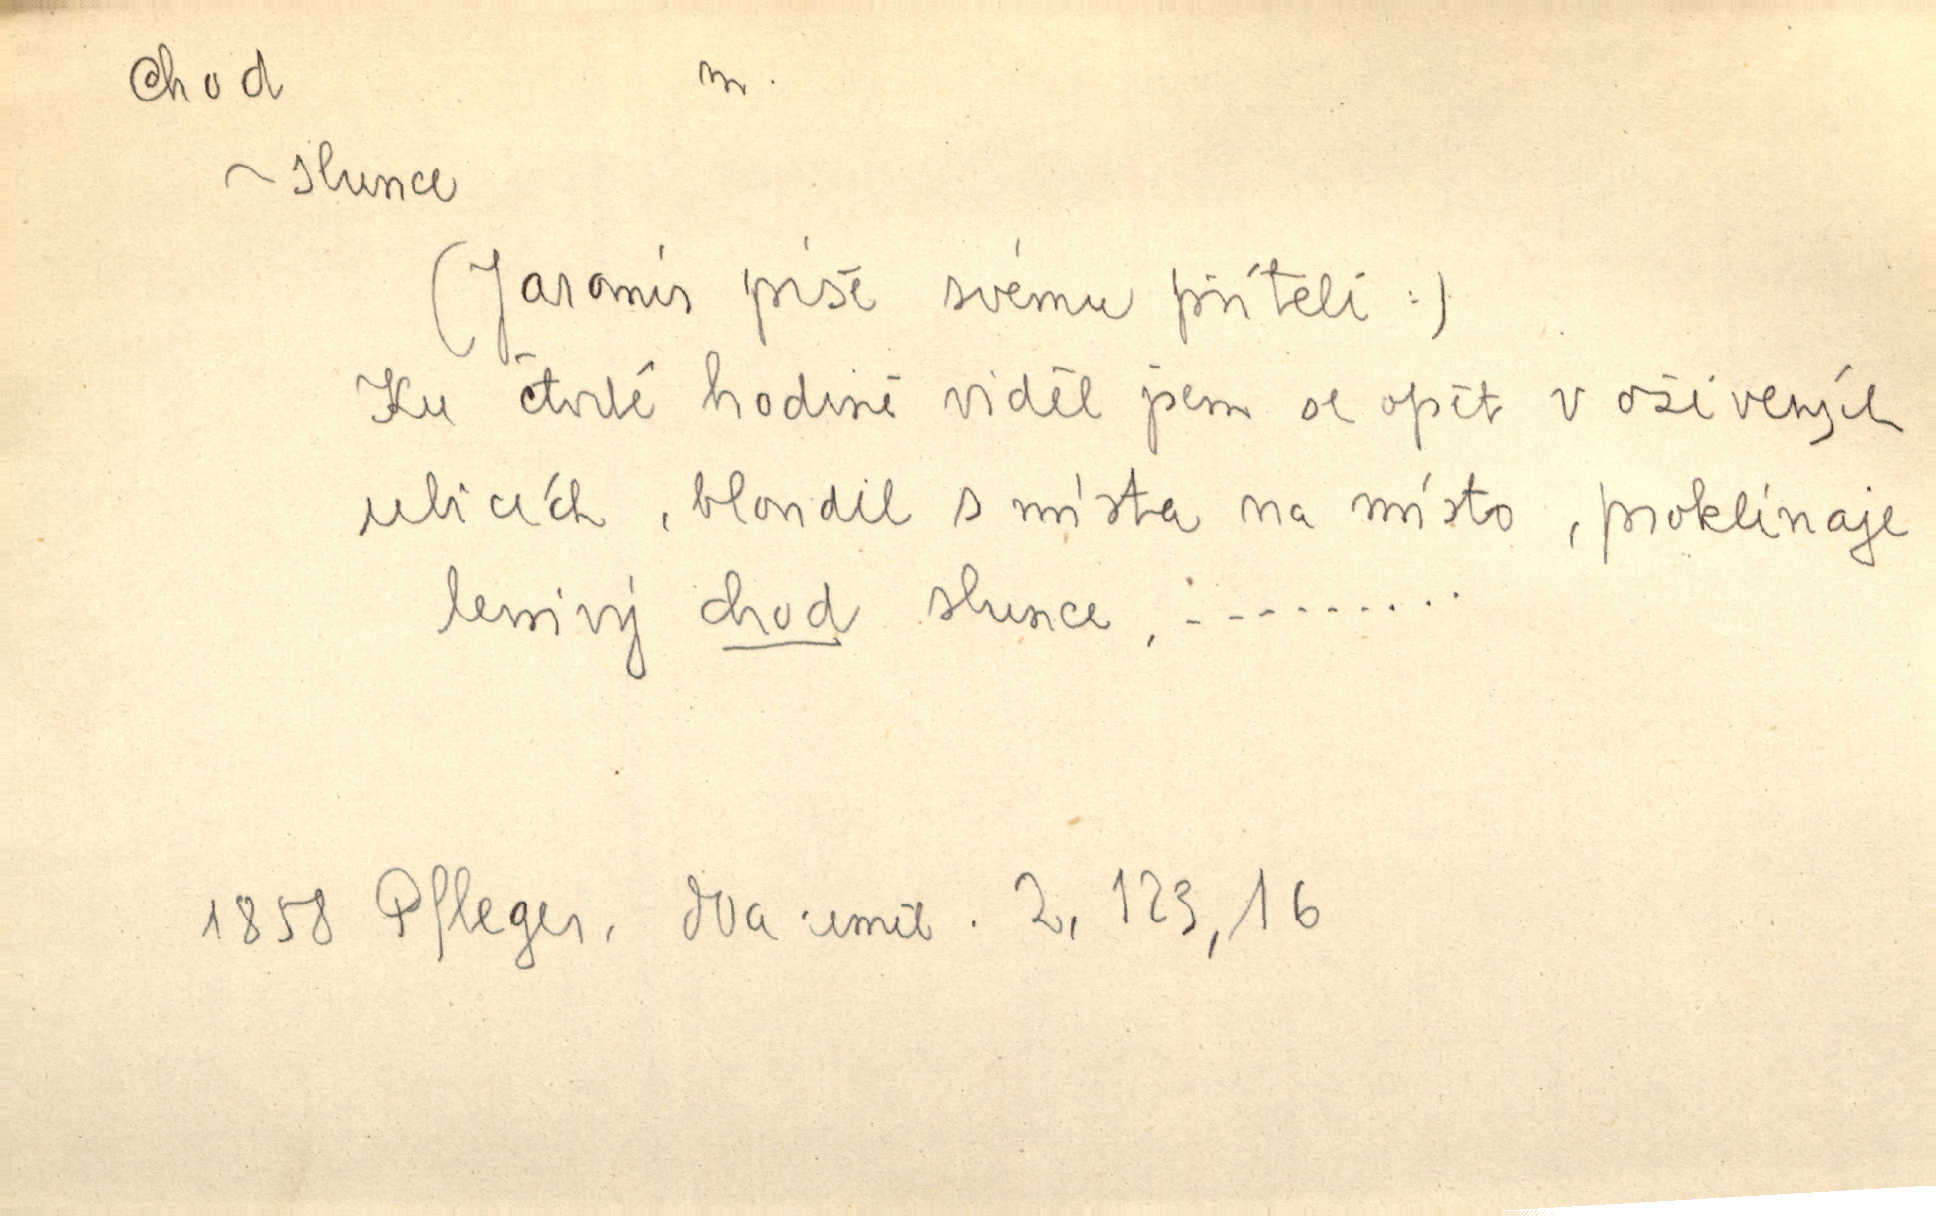 Chod m.
~ slunce
(Jaromír píše svému příteli :)
Ku čtvrté hodině viděl jsem se opět v oživených
ulicích, bloudil s místa na místo, proklínaje
lenivý chod slunce, .........
1858 Pfleger, Dva uměl. 2, 123, 16